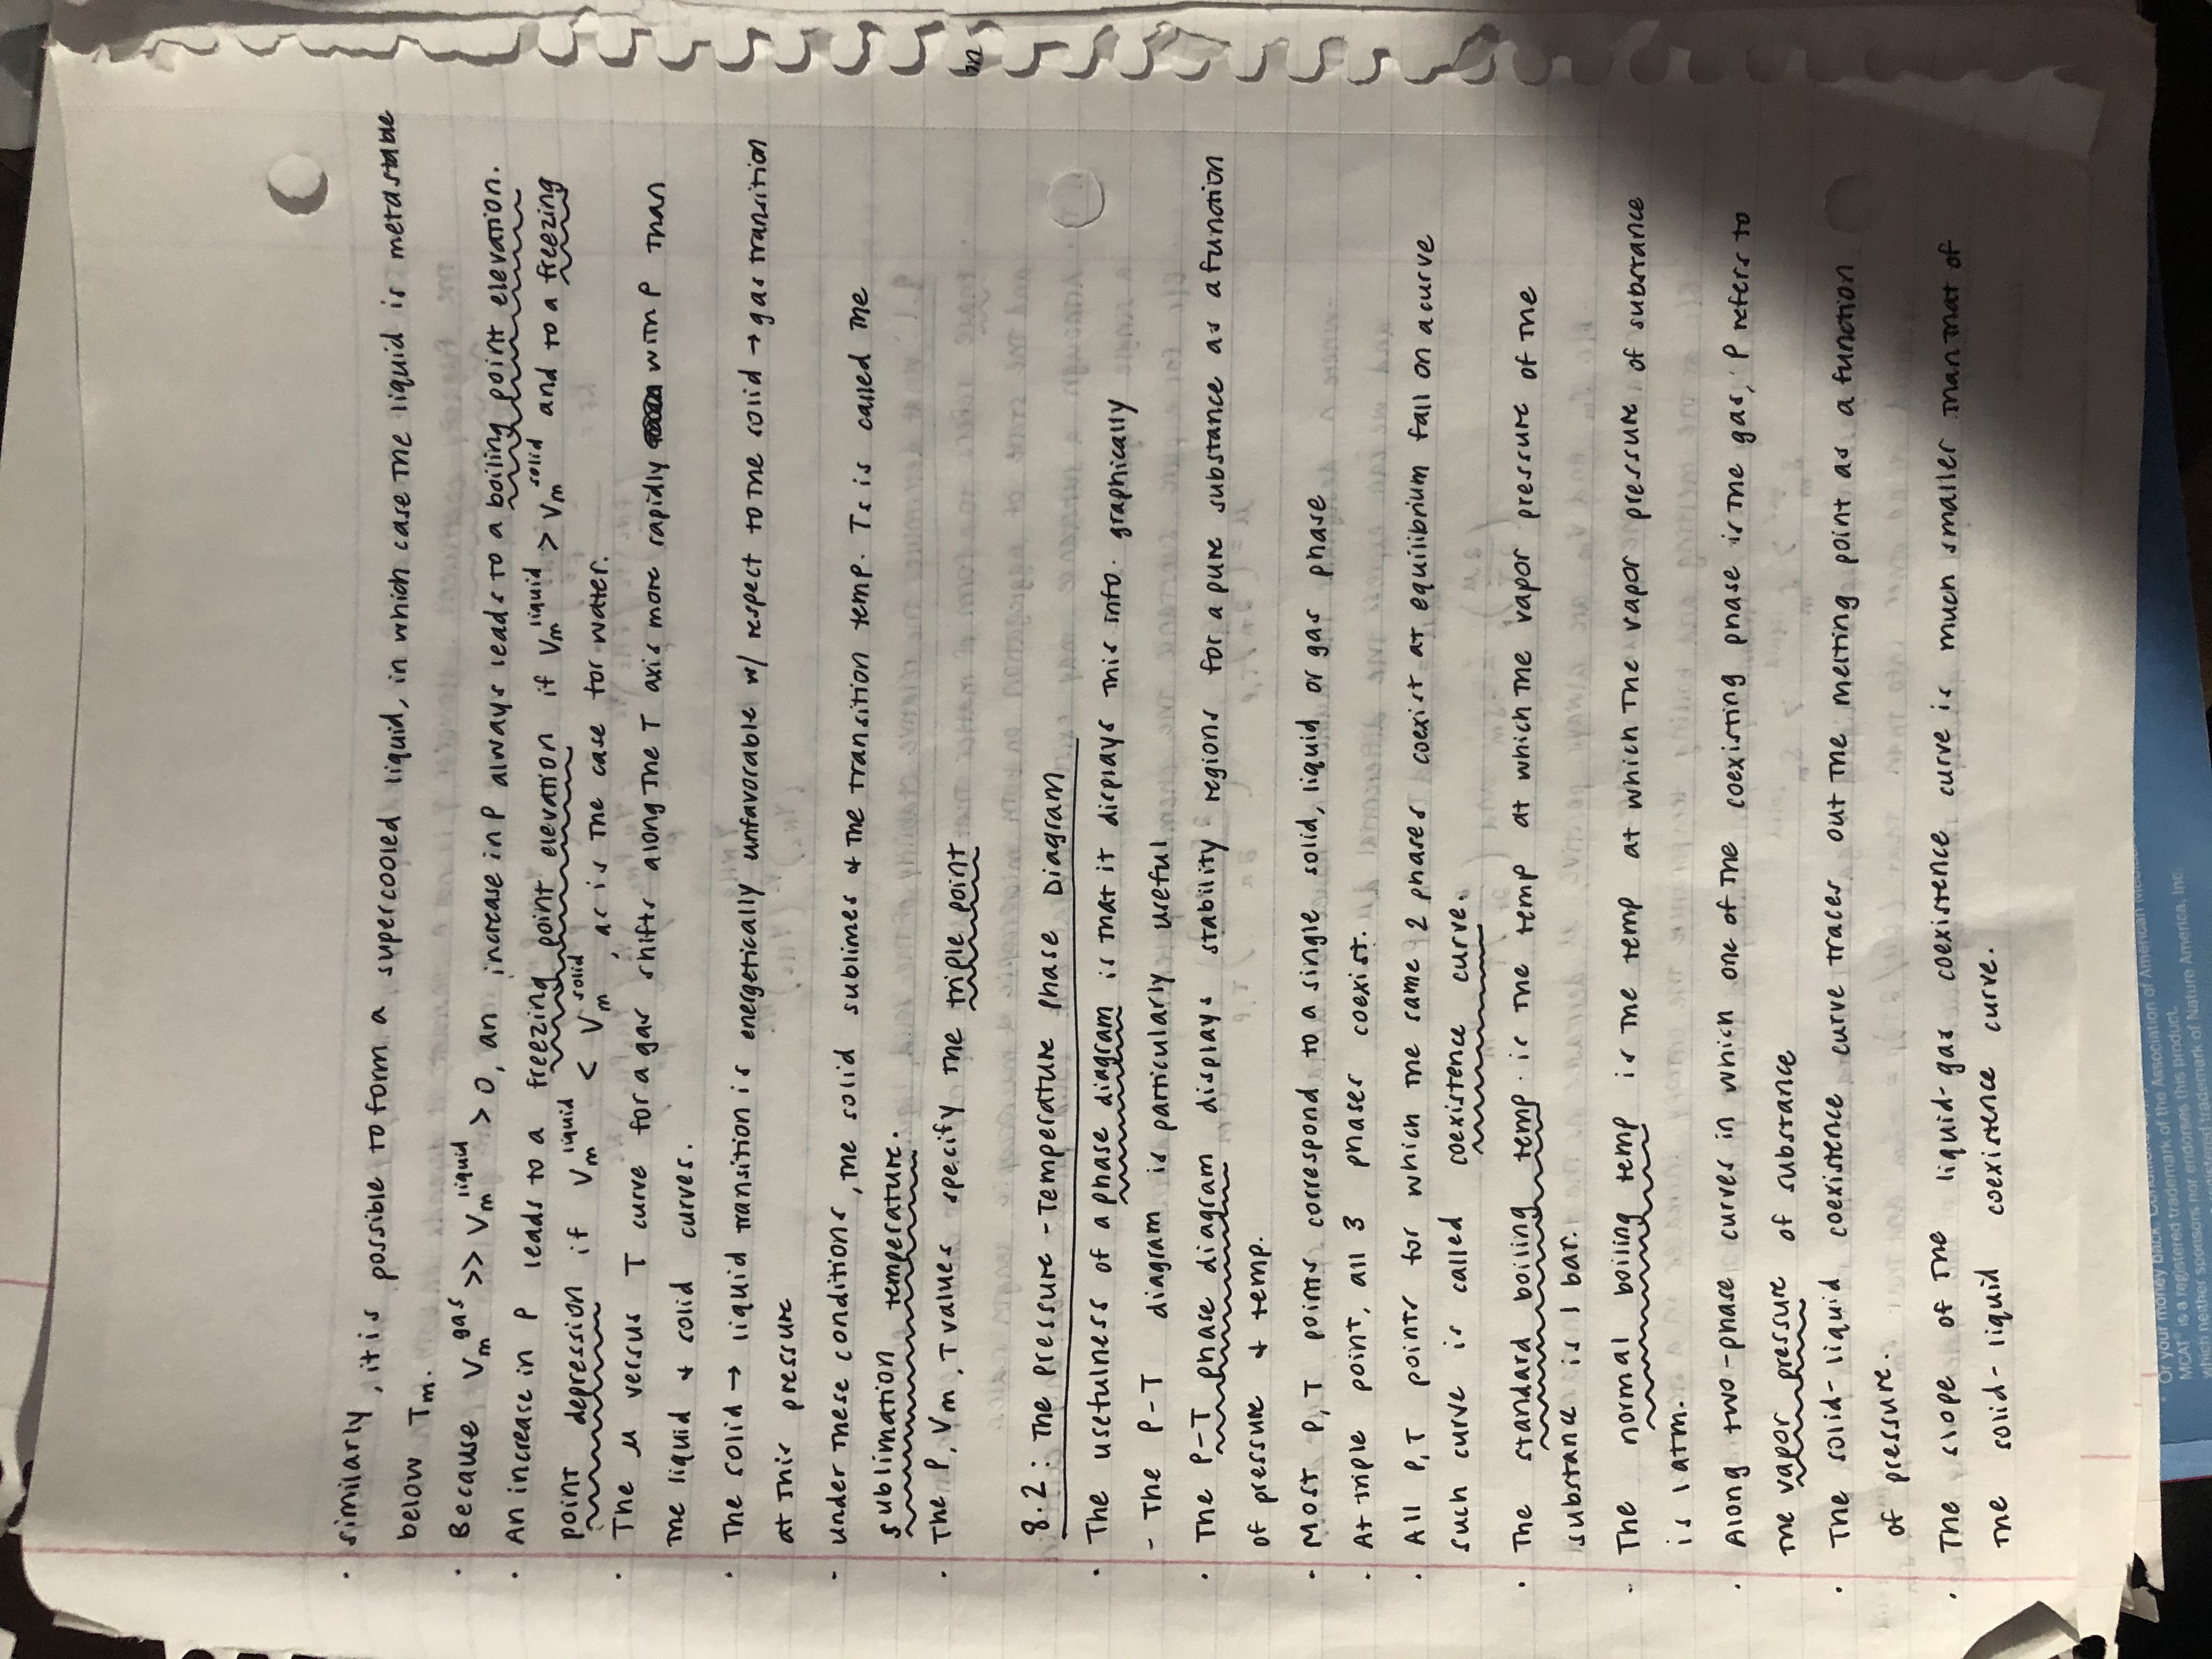 · similarly, it is possible to form a supercooled liquid, in which case the liquid is metastable
below Tm.
· Because Vm^gas >> Vm^liquid > 0, an increase in P always leads to a boiling point elevation.
· An increase in P leads to a freezing point elevation if Vm^liquid > Vm^solid and to a freezing
point depression if Vm^liquid < Vm^solid, as is the case for water.
· The μ versus T curve for a gas shifts along the T axis more rapidly with P than
the liquid & solid curves.
· The solid → liquid transition is energetically unfavorable w/ respect to the solid → gas transition
at this pressure
- under these conditions, the solid sublimes & the transition temp. Ts is called the
sublimation temperature.
· The P, Vm, T values specify the triple point
8.2: The Pressure-Temperature Phase Diagram
· The usefulness of a phase diagram is that it displays this info. graphically
- The P-T diagram is particularly useful
· The P-T phase diagram displays stability regions for a pure substance as a function
of pressure & temp.
- Most P, T points correspond to a single solid, liquid or gas phase
· At triple point, all 3 phases coexist.
· All P,T points for which the same 2 phases coexist at equilibrium fall on a curve
such curve is called coexistence curve.
· The standard boiling temp. is the temp at which the vapor pressure of the
substance is 1 bar.
- The normal boiling temp is the temp at which the vapor pressure of substance
is 1 atm.
· Along two-phase curves in which one of the coexisting phase is the gas, P refers to
the vapor pressure of substance
· The solid-liquid coexistence curve traces out the melting point as a function
of pressure.
· The slope of the liquid-gas coexistence curve is much smaller than that of
the solid-liquid coexistence curve.
Or your money back.
MCAT® is a registered trademark of the Association of American
which neither sponsors nor endorses this product.
registered trademark of Nature America, Inc.